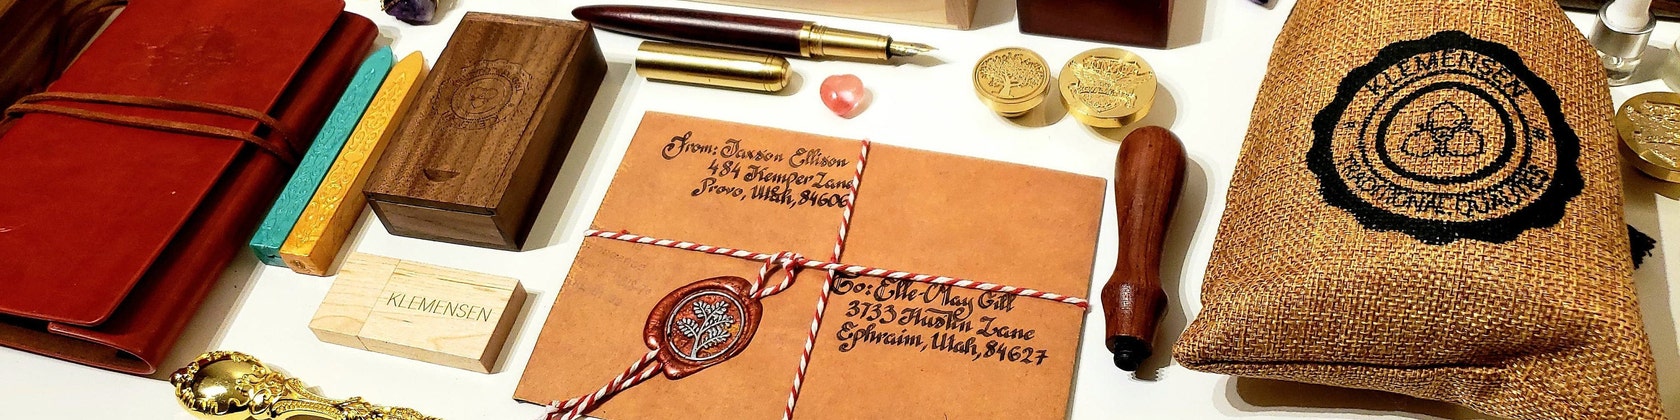 From: Jaxson Ellison
484 Kemper Lane
Provo, Utah, 84606
To: Elle-May Gill
3733 Hustin Lane
Ephraim, Utah, 84627
KLEMENSEN
KLEMENSEN
TRADITIONAL